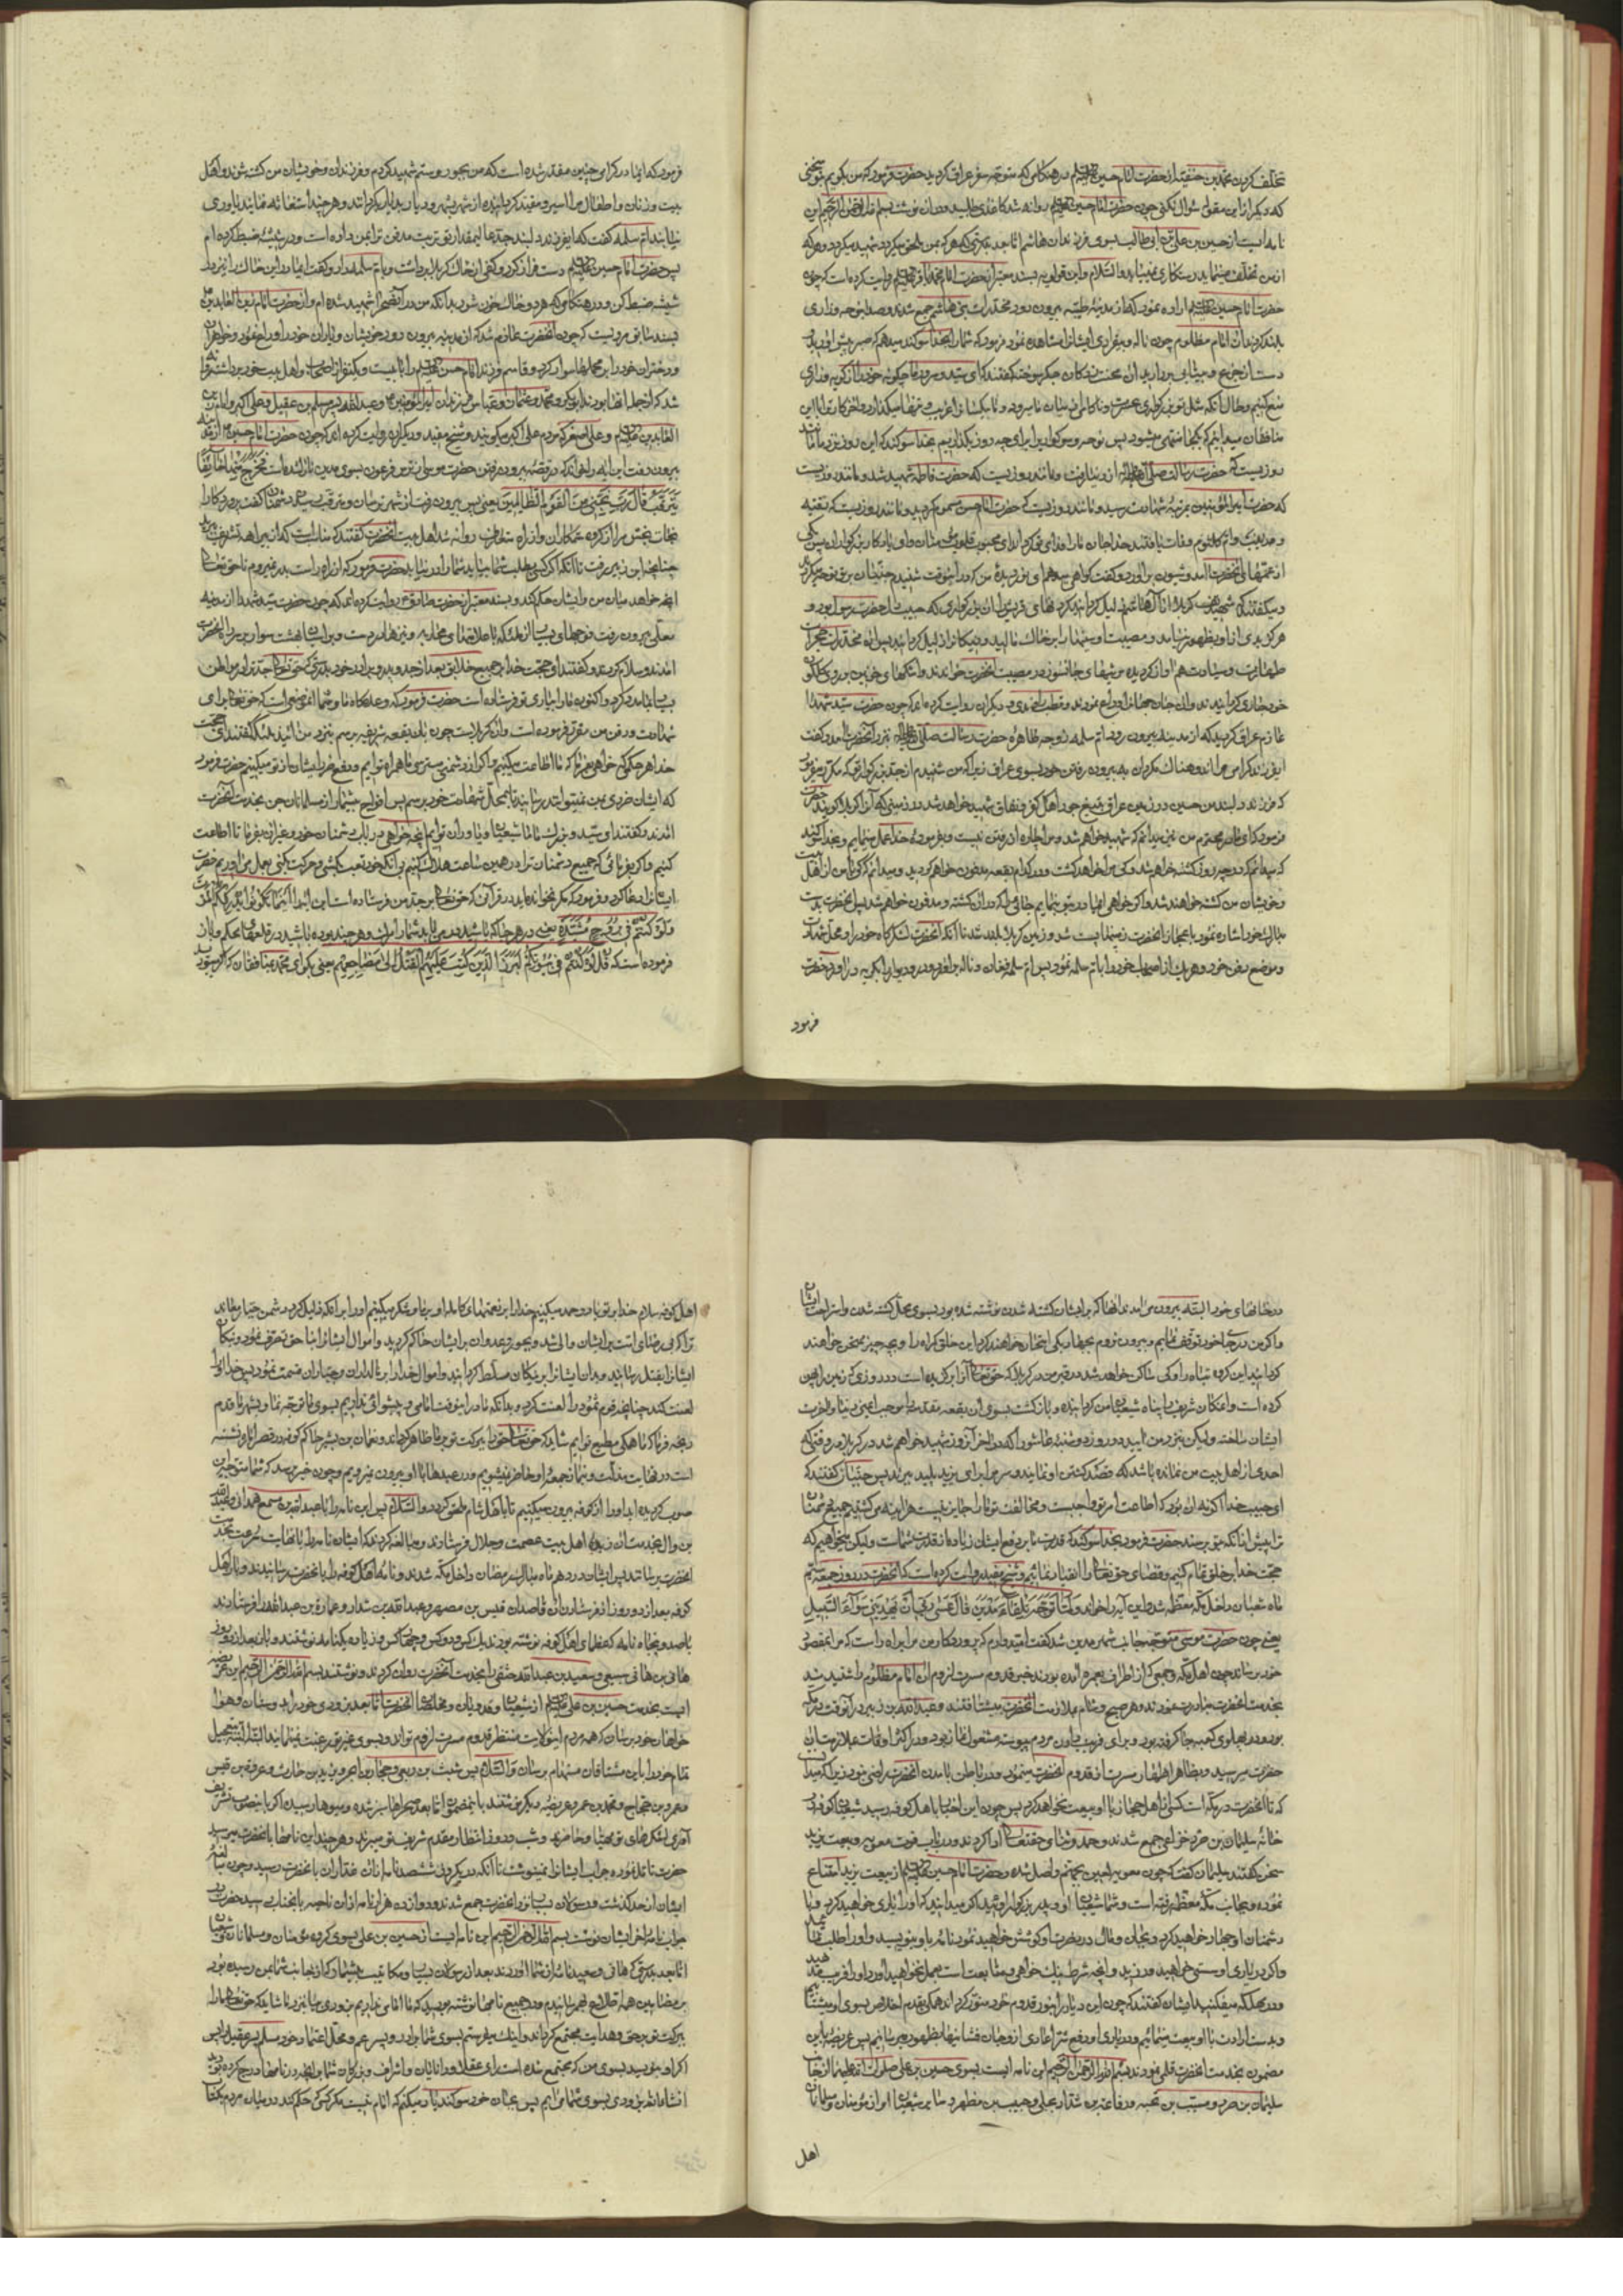 تخلف کردن محمد بن حنفیه از حضرت امام حسین علیه السلام در هنگامی که متوجه سفر عراق گردید حضرت فرمود که من بگویم بتو سخنی
که دیگر از این مقوله سؤال نکنی چون حضرت امام حسین علیه السلام روانه شد کاغذی طلبید و در آن نوشت بسم الله الرحمن الرحیم این
نامه ایست از حسین بن علی بن ابی طالب بسوی فرزندان هاشم اما بعد بدرستی که هر که بمن ملحق میگردد شهید میگردد و هر که
از من تخلف مینماید رستگاری نمییابد والسلام و ابن قولویه بسند معتبر از حضرت امام محمد باقر علیه السلام روایت کرده است که چون
حضرت امام حسین علیه السلام اراده نمود که از مدینه طیبه بیرون رود مخدرات بنی هاشم جمع شدند و صدا بنوحه و زاری
بلند کردند آن امام مظلوم چون ناله و بیقراری ایشانرا مشاهده نمود فرمود که شما را بخدا سوگند میدهم که صبر پیش آورید
دست از جزع و بیتابی بردارید آن
منع کنیم و حال آنکه مثل تو بزرگواری
منافقان
روزیست که حضرت رسالت صلی الله علیه و آله از دنیا رفت و مانند روزیست که حضرت فاطمه شهید شد و مانند روزیست
که حضرت امیرالمؤمنین بمرتبه شهادت رسید و مانند روزیست که حضرت امام حسن مسموم گردید و مانند روزیست که رقیه
و زینب و ام کلثوم وفات یافتند خدا جان ما را فدای تو گرداند ای محبوب قلوب مؤمنان و ای یادگار بزرگواران پس یکی
از عمهای آنحضرت آمد و شیون برآورد و گفت گواهی میدهم ای نور دیده من که در اینوقت شنیدم جنیان بر تو نوحه میکردند
و میگفتند که
هرگز بدی از او بظهور نیامد و
طهارت و سیادت هم آواز گردیده مرثیهای جانسوز در مصیبت آنحضرت خواندند و اشکهای خونین بر روی گلگون
خود جاری گردانیدند و آن جان جهانرا وداع نمودند و قطب راوندی و دیگران روایت کرده اند که چون حضرت سید شهدا
عازم عراق گردید که از مدینه بیرون رود ام سلمه زوجه طاهره حضرت رسالت صلی الله علیه و آله بنزد آنحضرت آمد و گفت
ای فرزند گرامی مرا اندوهناک مگردان به بیرون رفتن خود بسوی عراق زیرا که من شنیدم از جد بزرگوار تو که مکرر میفرمود
که فرزند دلبند من حسین در زمین عراق بتیغ جور اهل کفر و نفاق شهید خواهد شد در زمینی که آنرا کربلا گویند حضرت
فرمود که ای مادر محترم من نیز میدانم که شهید خواهم شد و مرا چاره از رفتن نیست و بفرموده خدا عمل مینمایم و بخدا سوگند
که میدانم که در چه روز کشته خواهم شد و کی مرا خواهد کشت و در کدام بقعه مدفون خواهم گردید و میدانم که کی با من از اهل بیت
و خویشان من کشته خواهند شد و اگر خواهی ای مادر بتو بنمایم جائی را که در آن کشته و مدفون خواهم شد پس آنحضرت بدست
مبارک خود اشاره نمود باعجاز آنحضرت زمینها پست شد و زمین کربلا بلند شد تا آنکه آنحضرت لشکرگاه خود را و محل شهادت
و موضع دفن خود و هر یک از اصحاب خود را بام سلمه نمود پس ام سلمه فغان و ناله برآورد
فرمود
فرمود که ای مادر گرامی چنین مقدر شده است که من بجور و ستم شهید گردم و فرزندان و خویشان من کشته شوند و اهل
بیت و زنان و اطفال مرا اسیر و مقید گردانیده از شهر بشهر و دیار بدیار بگردانند و هر چند استغاثه نمایند یاوری
نیابند ام سلمه گفت که ای فرزند دلبند جد عالیمقدار تو تربت مدفن ترا بمن داده است و در شیشه ضبط کرده ام
پس حضرت امام حسین علیه السلام دست دراز کرد و کفی از خاک کربلا برداشت و بام سلمه داد و گفت ای مادر این خاک را نیز در
شیشه ضبط کن و در هنگامی که هر دو خاک خون شود بدانکه من در آن صحرا شهید شده ام و از حضرت امام زین العابدین
بسند سابق مرویست که چون آنحضرت عازم شد که از مدینه بیرون رود خویشان و یاران خود را وداع نمود و خواهران
و دختران خود را بر محملها سوار کرد و قاسم فرزند امام حسن علیه السلام را با بیست و یکنفر از اصحاب و اهل بیت خود برداشته روانه
شد که از جمله آنها بودند ابوبکر و محمد و عثمان و عباس فرزندان امیرالمؤمنین و عبدالله پسر مسلم بن عقیل و علی اکبر و امام زین
العابدین علیه السلام و علی اصغر که مردم علی اکبر میگویند و شیخ مفید و دیگران روایت کرده اند که چون حضرت امام حسین از مدینه
بیرون رفت این آیه را خواند که در قصه بیرون رفتن حضرت موسی از ترس فرعون بسوی مدین نازل شده است فخرج منها خائفا
یترقب قال رب نجنی من القوم الظالمین یعنی پس بیرون رفت از شهر ترسان و مترقب رسیدن دشمنان گفت پروردگارا
نجات بخش مرا از گروه ستمکاران و از راه متعارف روانه شد اهل بیت آنحضرت گفتند که مناسب است که از بیراهه تشریف برید
چنانچه ابن زبیر رفت تا آنکه اگر کسی بطلب شما بیاید شما را در نیابد حضرت فرمود که از راه راست بدر نمیروم تا حق تعالی
آنچه خواهد میان من و ایشان حکم کند و بسند معتبر از حضرت صادق روایت کرده اند که چون حضرت سید شهدا از مدینه
معلی بیرون رفت فوجهای بسیار از ملائکه با علامتهای محاربه و نیزها در دست و بر اسبان بهشت سوار بر سر راه آنحضرت
آمدند و سلام کردند و گفتند ای حجت خدا بر جمیع خلایق بعد از جد و پدر و برادر خود بدرستی که حق تعالی جد ترا در مواطن
بسیار بما مدد کرد و اکنون ما را بیاری تو فرستاده است حضرت فرمود که وعده گاه ما و شما آن موضعی است که حق تعالی برای
شهادت و دفن من مقرر فرموده است و آن کربلاست چون بآن بقعه شریفه برسم بنزد من آئید ملائکه گفتند ای حجت
خدا هر حکم که خواهی بفرما که ما اطاعت میکنیم و اگر از دشمنی میترسی ما همراه توایم و دفع ضرر ایشان از تو میکنیم حضرت فرمود
که ایشان ضرری بمن نمیتوانند رسانید تا بمحل شهادت خود برسم پس افواج بیشمار از مسلمانان جن بخدمت آنحضرت
آمدند و گفتند ای سید و بزرگ ما ما شیعیان و یاوران توایم آنچه خواهی در باب دشمنان خود و غیر آن بفرما تا اطاعت
کنیم و اگر بفرمائی که جمیع دشمنان ترا در همین ساعت هلاک کنیم بی آنکه خود تعب بکشی و حرکت بکنی بعمل می آوریم حضرت
ایشانرا دعا کرد و فرمود که مگر نخوانده اید در قرآنی که حق تعالی بر جد من فرستاده است این آیه را اینما تکونوا یدرککم الموت
ولو کنتم فی بروج مشیدة یعنی در هر جا که باشید در می یابد شما را مرگ و هر چند بوده باشید در قلعهای محکم و باز
فرموده است که قل لو کنتم فی بیوتکم لبرز الذین کتب علیهم القتل الی مضاجعهم یعنی بگو ای محمد بمنافقان که اگر میبودید
در خانهای خود البته بیرون می آمدند آنها که بر ایشان کشته شدن نوشته شده بود بسوی محل کشته شدن و استراحت ایشان
و اگر من در جای خود توقف نمایم و بیرون نروم بجهاد
گردانید این گروه تباه را و کی ساکن خواهد شد در قبر من در کربلا که حق تعالی آنرا برگزیده است در روزی که زمین را پهن
کرده است و آن مکان شریف را پناه شیعیان من گردانیده و بازگشت بسوی آن بقعه مقدسه را موجب ایمنی دنیا و آخرت
ایشان ساخته ولیکن بنزد من آیید در روز
احدی از اهل بیت من نمانده باشد که قصد کشتن او نمایند و سر مرا برای یزید پلید ببرند پس جنیان گفتند که
ای حبیب خدا اگر نه آن بود که اطاعت امر تو واجبست و مخالفت تو ما را جایز نیست هر آینه میکشتیم جمیع دشمنان
ترا پیش از آنکه بتو برسند حضرت فرمود بخدا سوگند که قدرت ما بر دفع ایشان زیاده از قدرت شماست ولیکن میخواهیم که
حجت خدا بر خلق تمام کنیم و قضای حق تعالی را انقیاد نمائیم و شیخ مفید روایت کرده است که آنحضرت در روز جمعه سیم
ماه شعبان داخل مکه معظمه شد و این آیه را خواند ولما توجه تلقاء مدین قال عسی ربی ان یهدینی سواء السبیل
یعنی چون حضرت موسی متوجه جانب شهر مدین شد گفت امید دارم که پروردگار من مرا براه راست که مرا بمقصود
خود برساند چون اهل مکه و جمعی که از اطراف بعمره آمده بودند خبر قدوم مسرت لزوم آن امام مظلوم را شنیدند
بخدمت آنحضرت مبادرت نمودند و هر صبح و شام بملازمت آنحضرت میشتافتند و عبدالله بن زبیر در آنوقت در مکه
بود و در پهلوی کعبه جا گرفته بود و برای فریب دادن مردم پیوسته مشغول نماز بود و در اکثر اوقات بملازمت آن
حضرت میرسید و بظاهر اظهار مسرت از قدوم آنحضرت مینمود و در باطن بآمدن آنحضرت راضی نبود زیرا که میدانست
که تا آنحضرت در مکه است کسی از اهل حجاز با او بیعت نخواهد کرد پس چون این اخبار باهل کوفه رسید شیعیان کوفه در
خانه سلیمان بن صرد خزاعی جمع شدند و حمد و ثنای حقتعالی ادا کردند و در باب فوت معویه و بیعت یزید
سخن گفتند سلیمان گفت که چون معویه
نموده و بجانب مکه معظمه رفته است و شما شیعیان او و پدر بزرگوار اوئید اگر میدانید که او را یاری خواهید کرد و با
دشمنان او جهاد خواهید کرد و بجان و مال در نصرت او کوشش خواهید نمود نامه باو بنویسید و او را طلب نمائید
و اگر در یاری او سستی خواهید ورزید و آنچه شرط نیک خواهی و متابعت است بعمل نخواهید آورد او را فریب مدهید
و در مهلکه میفکنید ایشان گفتند که چون این دیار را بنور قدوم خود منور گرداند همگی بقدم اخلاص بسوی او میشتابیم
و بدست ارادت با او بیعت مینمائیم و در یاری او و دفع شر اعادی از او جان فشانیها بظهور میرسانیم پس عریضه باین
مضمون بخدمت آنحضرت قلمی نمودند بسم الله الرحمن الرحیم این نامه ایست بسوی حسین بن علی صلوات الله علیهما از جانب
سلیمان بن صرد و مسیب بن نجبه و رفاعة بن شداد بجلی و حبیب بن مظهر و سایر شیعیان او از مؤمنان و مسلمانان
اهل
اهل کوفه سلام خدا بر تو باد و حمد میکنیم خدا را بر نعمتهای کامله او بر ما و شکر میکنیم او را بر آنکه هلاک کرد دشمن جبار معاند
ترا که بی رضای امت بر ایشان والی شد و بجور و عدوان بر ایشان حاکم گردید و اموال ایشانرا بناحق تصرف نمود و نیکان
ایشانرا بقتل رسانید و بدان ایشانرا بر نیکان مسلط گردانید و اموال خدا را بر مالداران و جباران قسمت نمود پس خدا او را
لعنت کند چنانچه قوم ثمود را لعنت کرد و بدانکه ما در اینوقت امامی و پیشوائی نداریم بسوی ما توجه نما و بشهر ما قدم
رنجه فرما که ما همگی مطیع توایم شاید که حق تعالی حق را ببرکت تو بر ما ظاهر گرداند و نعمان بن بشیر حاکم کوفه در قصر الاماره نشسته
است در نهایت مذلت و بنماز جمعه او حاضر نمیشویم و در عیدها با او بیرون نمیرویم و چون خبر برسد که شما متوجه این
صوب گردیده اید او را از کوفه بیرون میکنیم تا باهل شام ملحق گردد والسلام پس این نامه را با عبدالله بن مسمع همدانی و عبدالله
بن وال بخدمت آن زبده اهل بیت عصمت و جلال فرستادند و مبالغه کردند که ایشان نامه را با نهایت سرعت بخدمت
آنحضرت برسانند پس ایشان در دهم ماه مبارک رمضان داخل مکه شدند و نامه اهل کوفه را بآنحضرت رسانیدند و باز اهل
کوفه بعد از دو روز از فرستادن آن قاصدان قیس بن مصهر و عبدالله بن شداد و عمارة بن عبدالله را فرستادند
با صد و پنجاه نامه که عظمای اهل کوفه نوشته بودند یک کس و دو کس و چهار کس و زیاده یکنامه نوشتند و باز بعد از دو روز
هانی بن هانی سبیعی و سعید بن عبدالله حنفی را بخدمت آنحضرت روان کردند و نوشتند بسم الله الرحمن الرحیم این عریضه
ایست بخدمت حسین بن علی علیه السلام از شیعیان و فدویان و مخلصان آنحضرت اما بعد بزودی خود را بدوستان و هوا
خواهان خود برسان که همه مردم این ولایت منتظر قدوم مسرت لزوم تواند و بسوی غیر تو رغبت نمینمایند البته البته بتعجیل
تمام خود را باین مشتاقان مستهام برسان والسلام پس شبث بن ربعی و حجار بن ابجر و یزید بن حارث و عروة بن قیس
و عمرو بن حجاج و محمد بن عمرو عریضه دیگر نوشتند باین مضمون اما بعد صحراها سبز شده و میوها رسیده اگر باینصوب تشریف
آوری لشکرهای تو مهیا و حاضرند و شب و روز انتظار مقدم شریف تو میبرند و هر چند این نامها بآنحضرت میرسید
حضرت تأمل نموده جواب ایشانرا نمینوشت تا آنکه در یکروز ششصد نامه از آن غداران بآنحضرت رسید و چون مبالغه
ایشان از حد گذشت و رسولان بسیار نزد آنحضرت جمع شدند و دوازده هزار نامه از آن ناحیه بآنجناب رسید حضرت در
جواب نامه آخر ایشان نوشت بسم الله الرحمن الرحیم این نامه ایست از حسین بن علی بسوی گروه مؤمنان و مسلمانان و شیعیان
اما بعد بدرستی که هانی و سعید نامهای شما را آوردند بعد از رسولان بسیار و مکاتبت بیشمار که از جانب شما بمن رسیده بود
بر مضامین همه اطلاع بهم رسانیدم و در جمیع نامها نوشته بودید که ما امامی نداریم بزودی بیا بنزد ما شاید که حق تعالی ما را
ببرکت تو بر حق و هدایت مجتمع گرداند و اینک میفرستم بسوی شما برادر و پسر عم و محل اعتماد خود مسلم بن عقیل را پس
اگر او بنویسد بسوی من که مجتمع شده است رأی عقلا و دانایان و اشراف و بزرگان شما بر آنچه در نامها درج کرده بودید
انشاء الله بزودی بسوی شما می آیم پس بجان خود سوگند یاد میکنم که امام نیست مگر کسی که حکم کند در میان مردم بکتاب